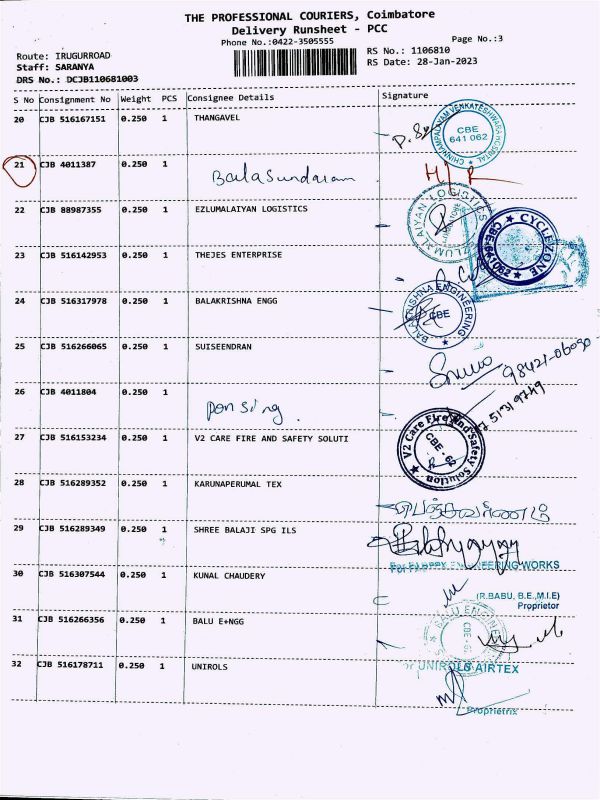 THE PROFESSIONAL COURIERS, Coimbatore
Delivery Runsheet - PCC
Phone No.:0422-3505555
Page No.:3
Route: IRUGURROAD
RS No.: 1106810
Staff: SARANYA
RS Date: 28-Jan-2023
DRS No.: DCJB110681003
S No Consignment No Weight PCS Consignee Details Signature
20 CJB 516167151 0.250 1 THANGAVEL
CHINNAMPALAYAM VENKATESHWARA HOSPITAL
CBE
641 062
21 CJB 4011387 0.250 1 Balasundaram
22 CJB 88987355 0.250 1 EZLUMALAIYAN LOGISTICS
EZLUMALAIYAN LOGISTICS
CYCLEZONE
CBE-641062
23 CJB 516142953 0.250 1 THEJES ENTERPRISE
24 CJB 516317978 0.250 1 BALAKRISHNA ENGG
BALAKRISHNA ENGINEERING
CBE
25 CJB 516266065 0.250 1 SUISEENDRAN
26 CJB 4011804 0.250 1 Ponsing.
27 CJB 516153234 0.250 1 V2 CARE FIRE AND SAFETY SOLUTI
V2 Care Fire And Safety Solution
28 CJB 516289352 0.250 1 KARUNAPERUMAL TEX
29 CJB 516289349 0.250 1 SHREE BALAJI SPG ILS
ENGINEERING WORKS
30 CJB 516307544 0.250 1 KUNAL CHAUDERY
(R.BABU, B.E.,M.I.E)
Proprietor
31 CJB 516266356 0.250 1 BALU E+NGG
32 CJB 516178711 0.250 1 UNIROLS
For UNIROLS AIRTEX
Proprietrix